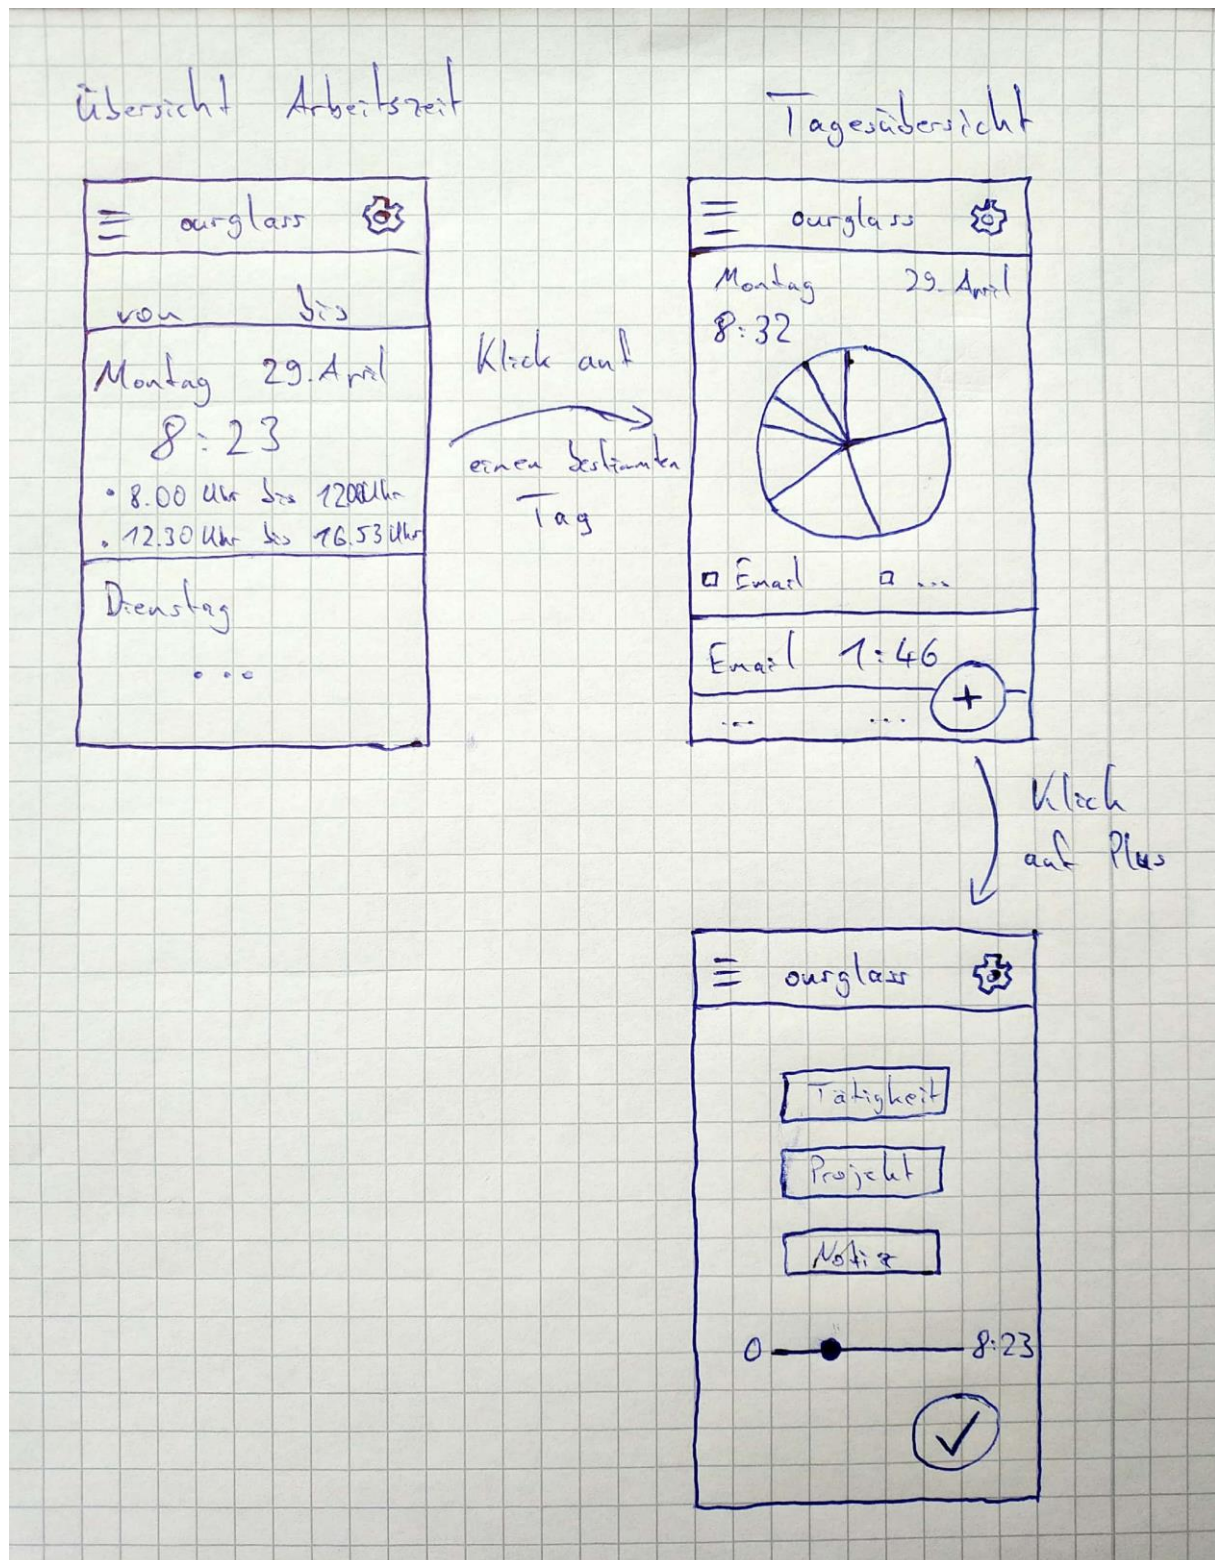 Übersicht Arbeitszeit
ourglass
von bis
Montag 29. April
8:23
• 8.00 Uhr bis 1200Uhr
• 12.30 Uhr bis 16.53 Uhr
Dienstag
...
Klick auf
einen bestimmten
Tag
Tagesübersicht
ourglass
Montag 29. April
8:32
Email ...
Email 1:46
+
... ...
Klick
auf Plus
ourglass
Tätigkeit
Projekt
Notiz
0 8:23